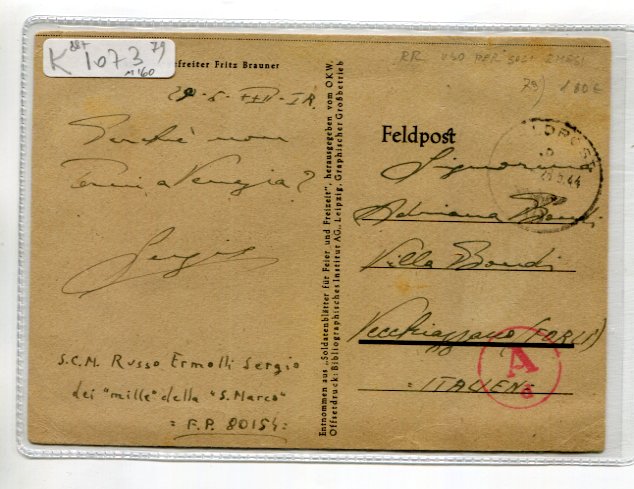 K 1073 79
M160
efreiter Fritz Brauner
RR USO PER SOLI 2 MESI
79) 180€
29-5-XXII-I R.
Perché non
vieni a Venezia?
Sergio
S.C.M. Russo Ermolli Sergio
dei "mille" della "S. Marco"
= F.P. 80154=
Entnommen aus „Soldatenblätter für Feier und Freizeit", herausgegeben vom OKW.
Offsetdruck: Bibliographisches Institut AG., Leipzig, Graphischer Großbetrieb
Feldpost
LDPOST
44
Signorina
Adriana
Villa
Vecchiazzano (FORLI)
=ITALIEN=
A
a